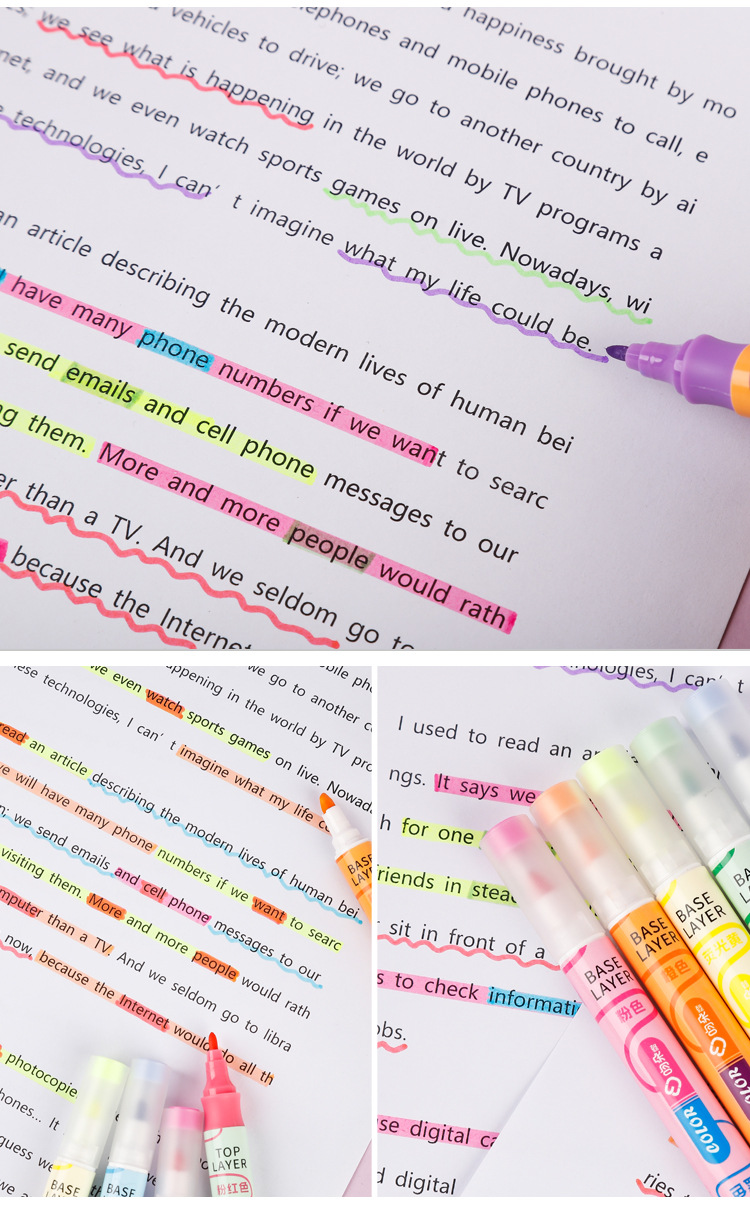 happiness brought by mo
telephones and mobile phones to call, e
vehicles to drive; we go to another country by ai
we see what is happening in the world by TV programs a
net, and we even watch sports games on live. Nowadays, wi
technologies, I can't imagine what my life could be.
an article describing the modern lives of human bei
have many phone numbers if we want to searc
send emails and cell phone messages to our
ng them. More and more people would rath
er than a TV. And we seldom go to
because the Internet
we go to another c
appening in the world by TV pro
we even watch sports games on live. Nowad
ese technologies, I can't imagine what my life c
read an article describing the modern lives of human bei
we will have many phone numbers if we want to searc
n; we send emails and cell phone messages to our
visiting them. More and more people would rath
mputer than a TV. And we seldom go to libra
now, because the Internet would do all th
photocopie
hones... It
guess we
BASE
BASE
TOP
LAYER
粉红色
BASE
nologies, I can't
I used to read an ar
ngs. It says we
h for one
friends in stead
sit in front of a
s to check informati
obs.
se digital ca
d digital
ries
BASE
LAYER
粉色
COLOR
BASE
LAYER
橙色
BASE
LAYER
荧光黄